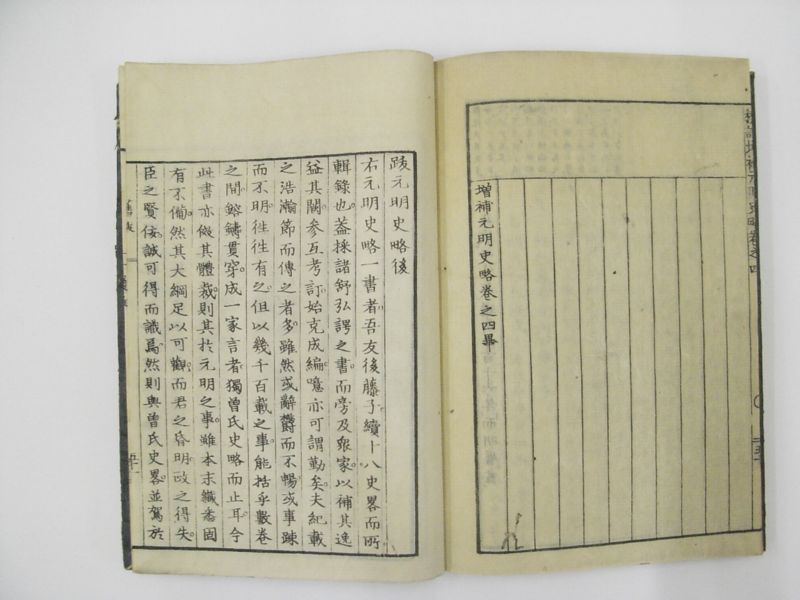 增補元明史略卷之四畢
跋元明史略後
右元明史略一書者吾友後藤子續十八史畧而所
輯錄也蓋採諸舒弘諤之書而旁及衆家以補其逸
益其闕參互考訂始克成編噫亦可謂勤矣夫紀載
之浩瀚節而傳之者多雖然或辭鬱而不暢或事踈
而不明徃徃有之但以幾千百載之事能括乎數卷
之間鎔鑄貫穿成一家言者獨曾氏史略而止耳今
此書亦倣其體裁則其於元明之事雖本末纎悉固
有不備然其大綱足以可觀而君之昏明政之得失
臣之賢佞誠可得而識焉然則與曾氏史畧並駕於